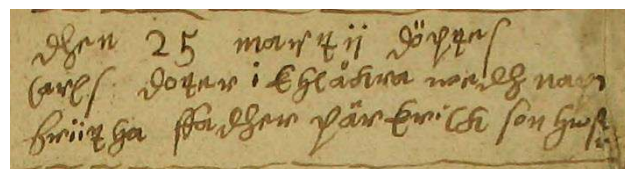 dhen 25 martij döptes
Carls doter i Ekhlåkra medh nap
briitha ffadher pär Erich son hust